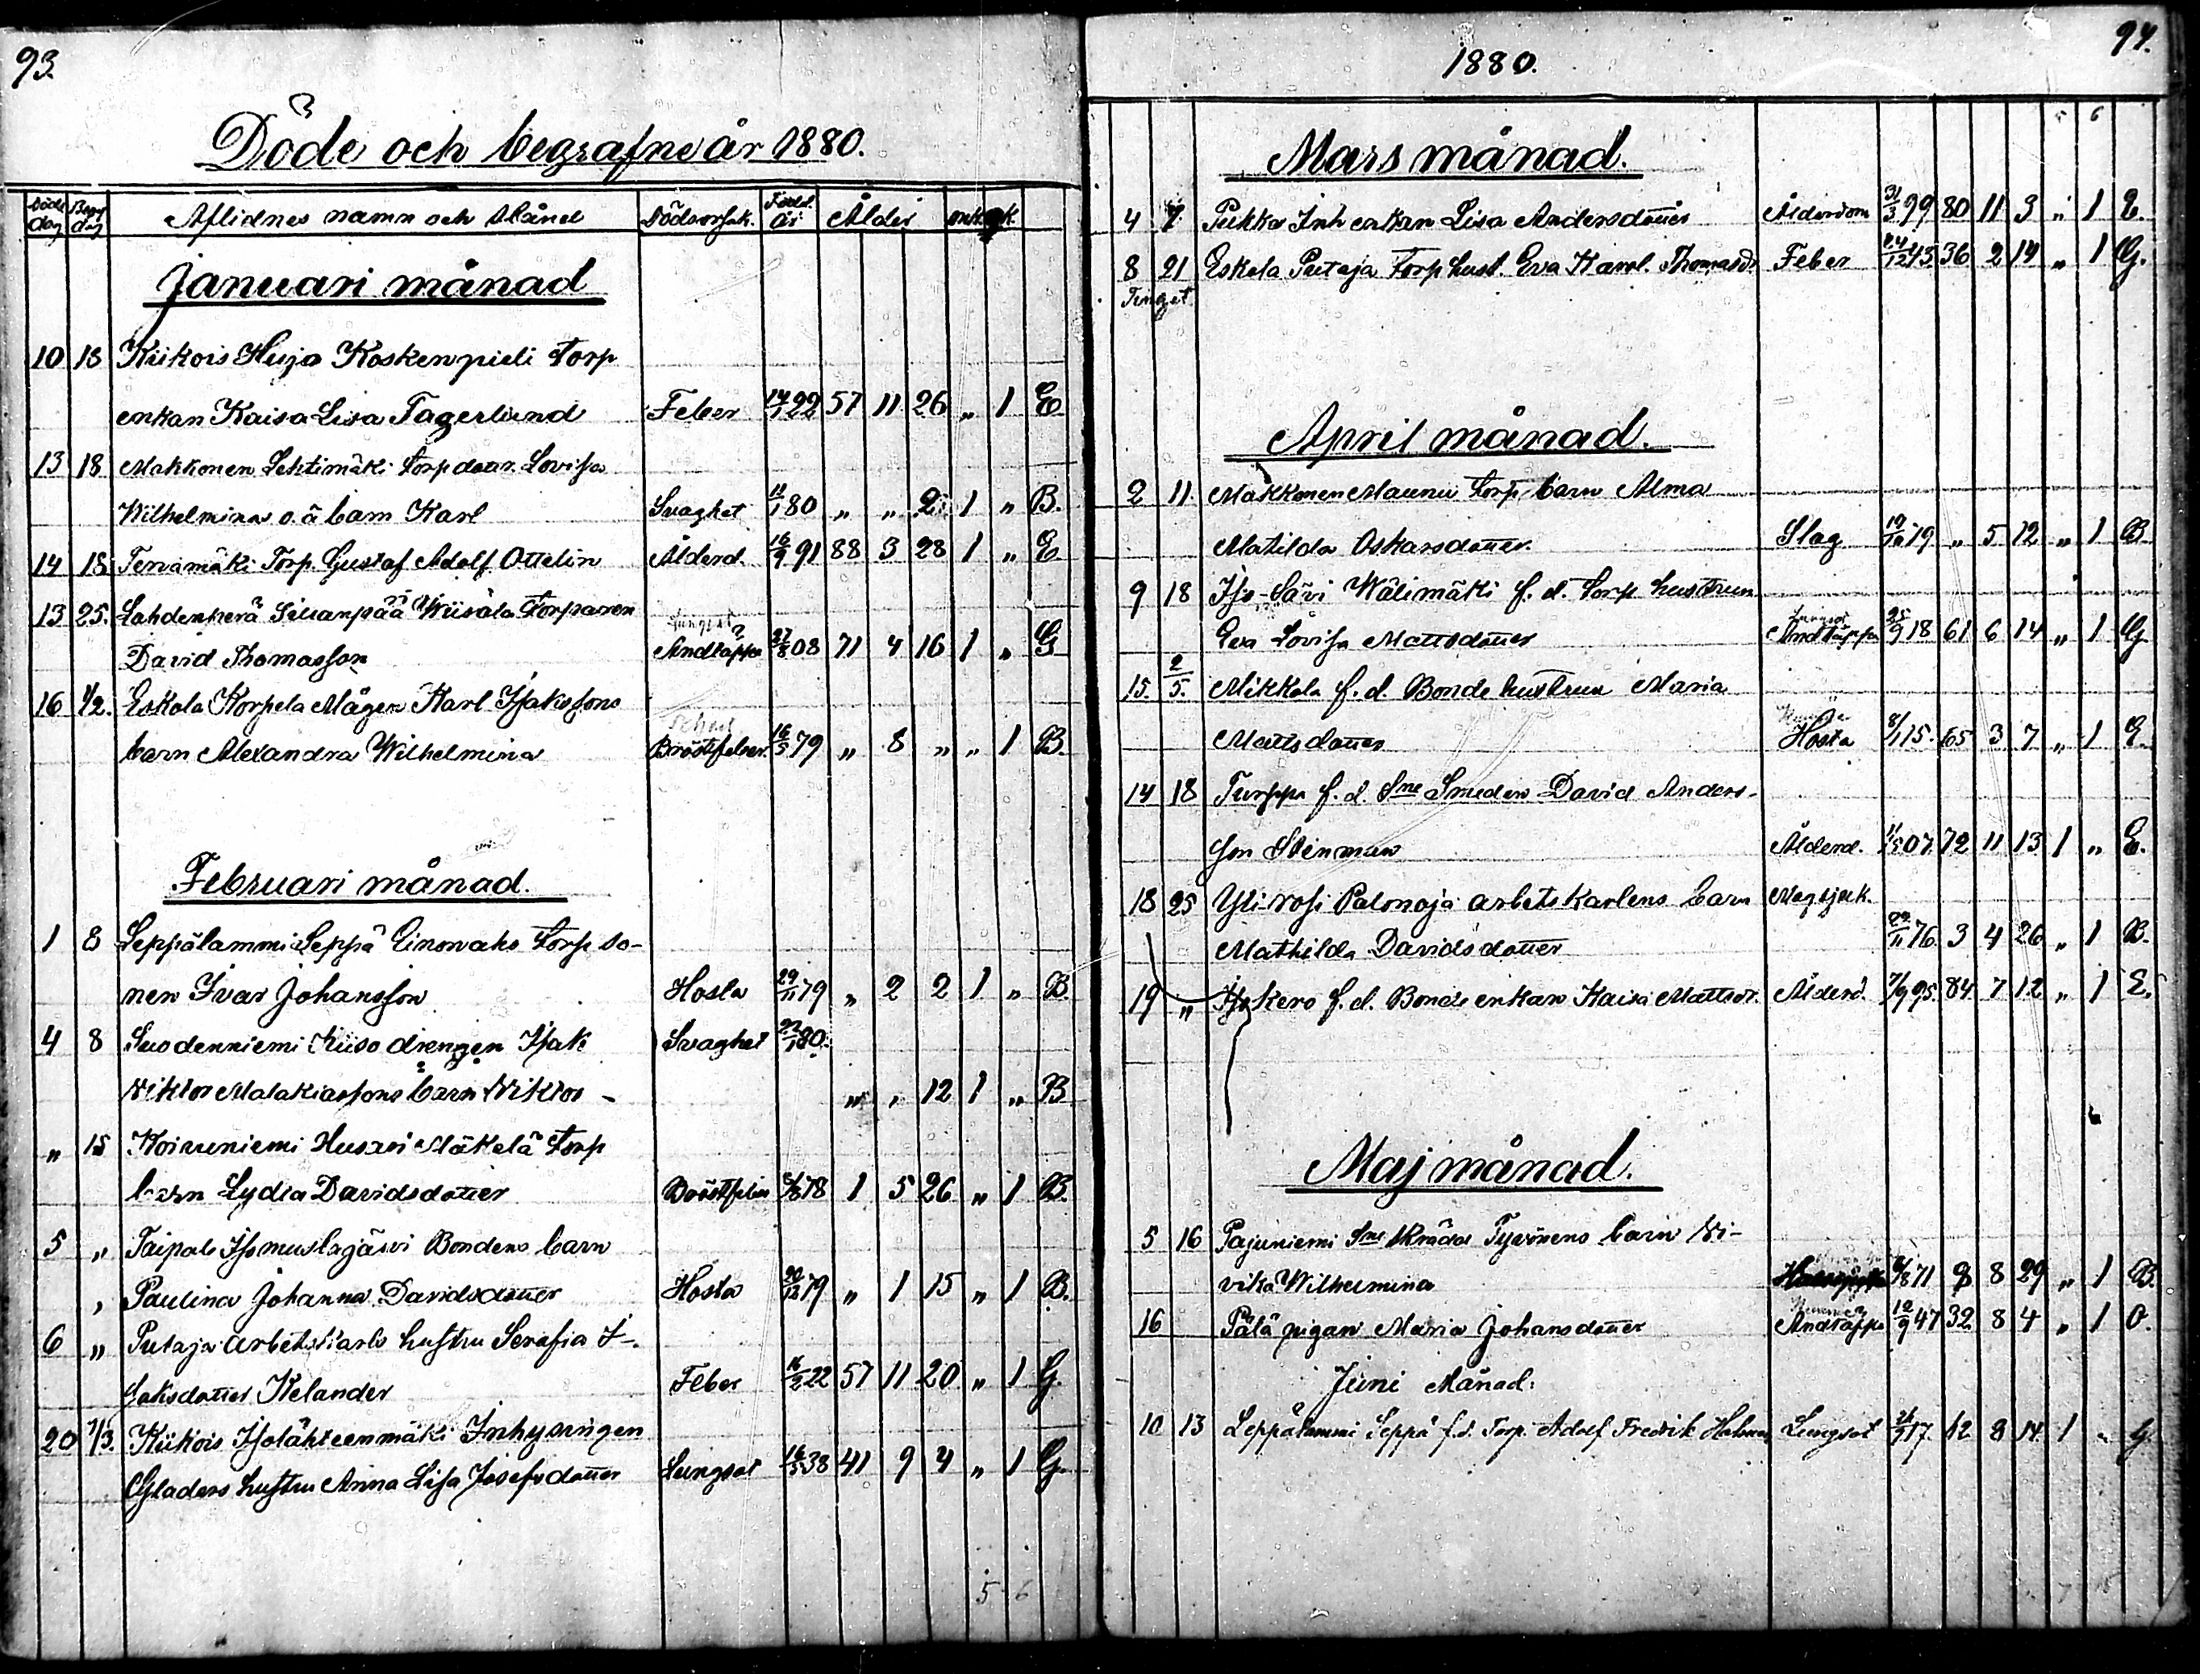 93.
Döde och begrafne år 1880.
Döds dag Begr dag Aflidnes namn och stånd Dödsorsak. Född. år Ålder mk qk.
Januari månad
10 18 Kiikois Huja Koskenpieli Torp
enkan Kaisa Lisa Fagerlund Feber 14/1 22 57 11 26 „ 1 E
13 18 Makkonen Lehtimäki Torp dotr. Lovisa
Wilhelmina o.ä barn Karl Svaghet 11/1 80 „ „ 2 1 „ B.
14 18 Tervamäki Torp. Gustaf Adolf Ottelin Ålderd. 16/9 91 88 3 28 1 „ E
13 25. Lahdenperä Sillanpää Wiisala Torparen
David Thomasson Andtäppa 27/8 08 71 4 16 1 „ G
16 1/2. Eskola Korpela Mågen Karl Isakssons
barn Alexandra Wilhelmina Bröstfeber 16/5 79 „ 8 „ „ 1 B.
Februari månad.
1 8 Leppälammi Seppä Einovaho Torp so-
nen Ivar Johansson Hosta 29/11 79 „ 2 2 1 „ B
4 8 Suodenniemi Kiiso drengen Isak Svaghet 22/1 80.
Viktor Malakiassons barn Viktor - „ „ 12 1 „ B
„ 15 Koivuniemi Husari Mäkelä Torp
barn Lydia Davidsdotter Bröstfeber 9/8 78 1 5 26 „ 1 B.
5 „ Taipale Isomuslajärvi Bondens barn
Paulina Johanna Davidsdotter Hosta 20/12 79 „ 1 15 „ 1 B.
6 „ Putaja arbetskarls hustru Serafia I-
saksdotter Kelander Feber 16/2 22 57 11 20 „ 1 G.
20 7/3. Kiikois Isolähteenmäki Inhysingen
Gladers hustru Anna Lisa Josefsdotter Lungsot 16/5 38 41 9 4 „ 1 G.
5 6
94.
1880.
5 6
Mars månad.
4 7 Pukka Inh enkan Lisa Andersdotter Ålderdom 31/3 99 80 11 3 „ 1 E.
8 21 Eskola Putaja Torp hust. Eva Karol. Thomasdr Feber 24/12 43 36 2 14 „ 1 G.
Tinget
April månad.
2 11. Makkonen Maunu Torp. barn Alma
Matilda Oskarsdotter. Slag 19/10 79 „ 5 12 „ 1 B
9 18 Iso-Sävi Wälimäki f. d. Torp hustrun
Eva Lovisa Mattsdotter Andtäppa 25/9 18 61 6 14 „ 1 G
15. 2/5. Mikkola f. d. Bonde hustrun Maria
Mattsdotter Hosta 8/1 15. 65 3 7 „ 1 E.
14 18 Turppa f. d. Sne Smeden David Anders-
son Stenman Ålderd. 1/5 07. 72 11 13 1 „ E.
18 25 Yli-rosi Palonoja arbets karlens barn Magsjuk.
Mathilda Davidsdotter 22/11 76. 3 4 26 „ 1 B.
19 „ Isokero f. d. Bonde enkan Kaisa Mattsdr. Ålderd. 7/9 95. 84. 7 12 „ 1 E.
Maj månad.
5 16 Pajuniemi Sne Skräd Tyvönens barn Vi-
vika Wilhelmina 6/8 71 8 8 29 „ 1 B.
16 Pälä pigan Maria Johansdotter Andtäppa 12/9 47 32 8 4 „ 1 O.
Juni Månad.
10 13 Leppälammi Seppä f.d. Torp. Adolf Fredrik Holman Lungsot 26/9 17. 62 8 14 1 „ G